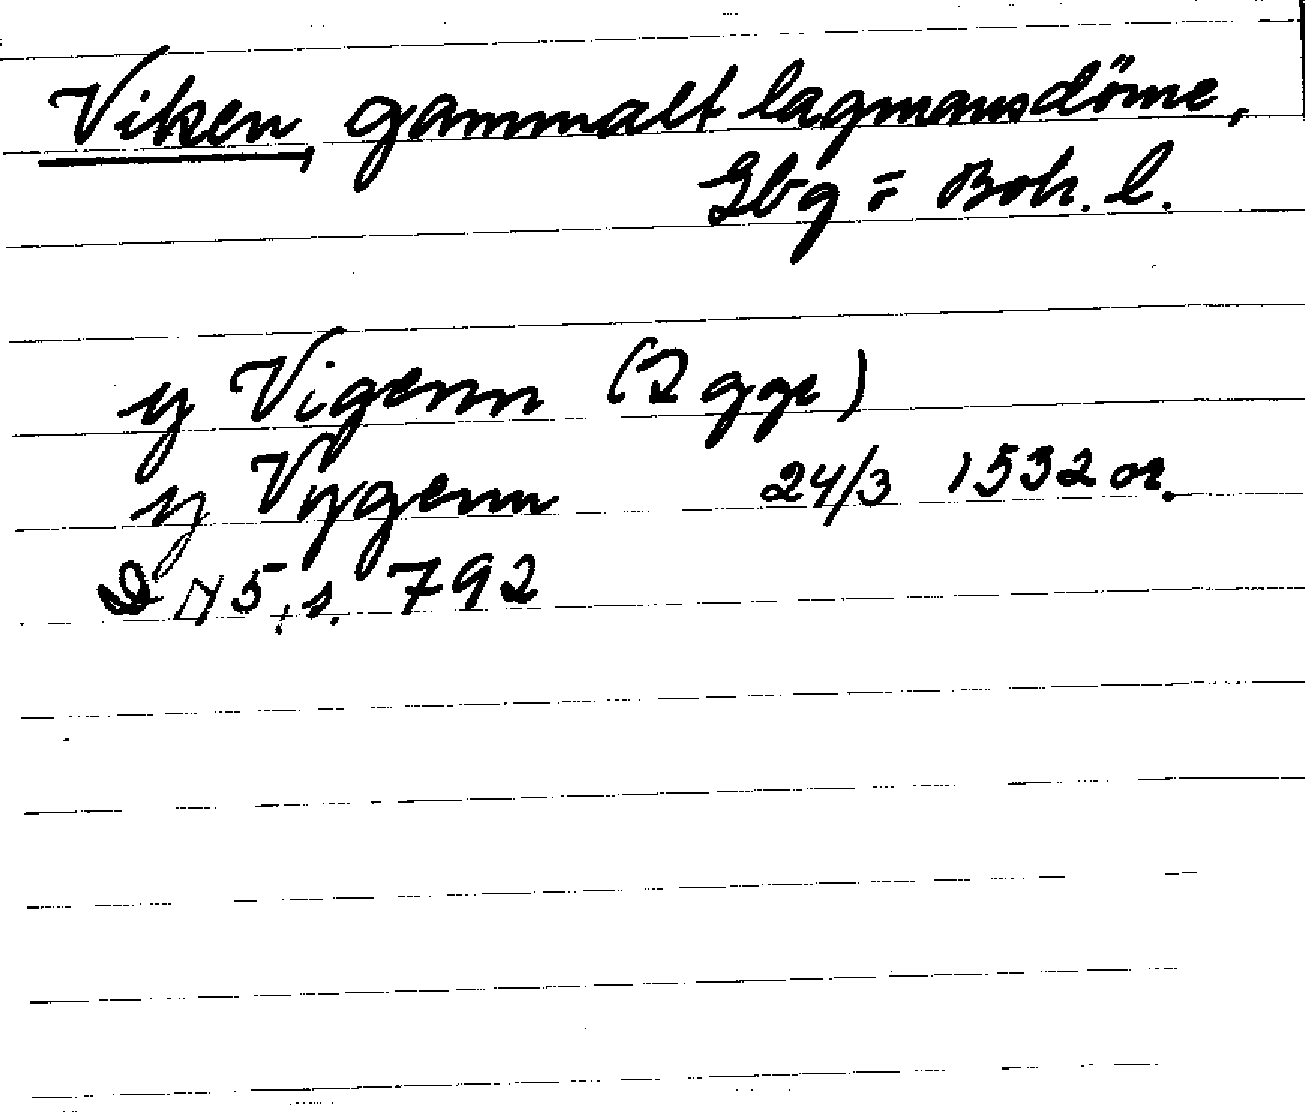 Viken, gammalt lagmansdöme,
Gbg o Boh. l.
y Vigenn (2 ggr)
y Vygenn 24/3 1532 or.
D 15, s. 792